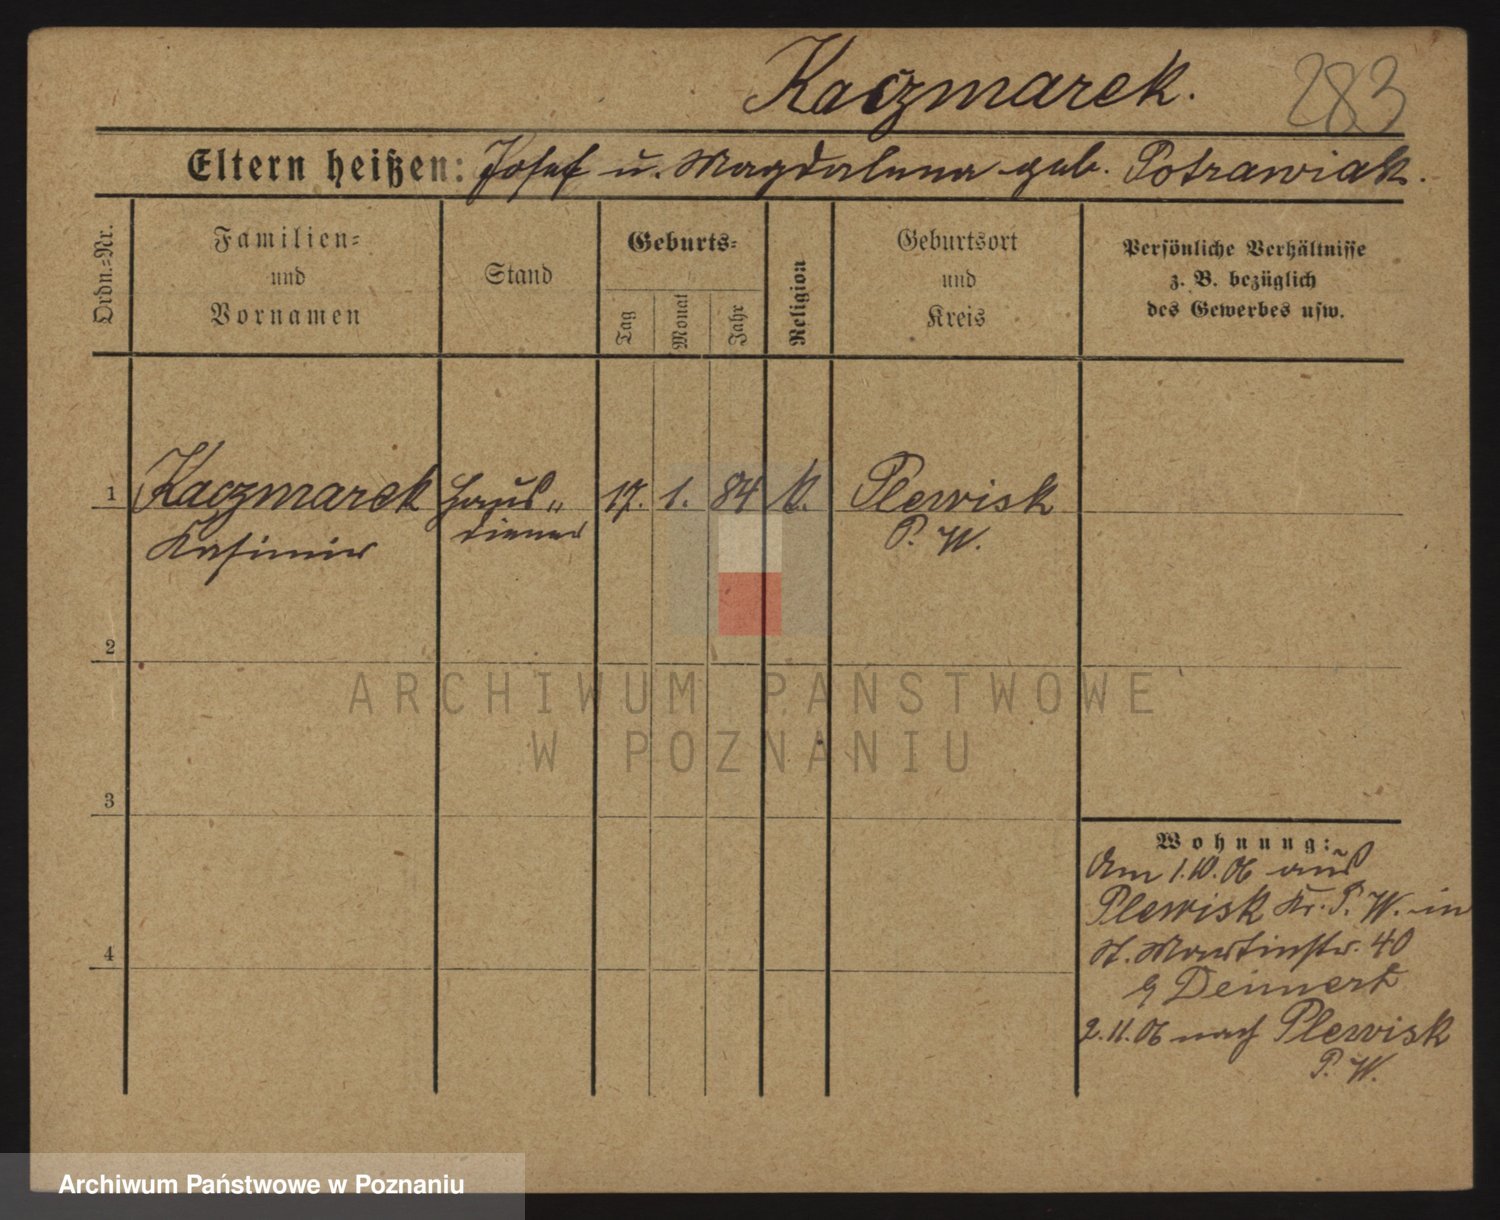 Kaczmarek.
283
Eltern heißen: Josef u. Magdalena geb. Potrawiak.
Ordn.=Nr.
Familien=
und
Vornamen
Stand
Geburts=
Tag
Monat
Jahr
Religion
Geburtsort
und
Kreis
Persönliche Verhältnisse
z. B. bezüglich
des Gewerbes usw.
1 Kaczmarek Haus= 17. 1. 84 k. Plewisk
Kasimir diener P. W.
2
ARCHIWUM PAŃSTWOWE
W POZNANIU
3
Wohnung:
Am 1.10.06 aus
Plewisk Kr. P. W. in
St. Martinstr. 40
Deinert
4
2.11.06 nach Plewisk
P. W.
Archiwum Państwowe w Poznaniu